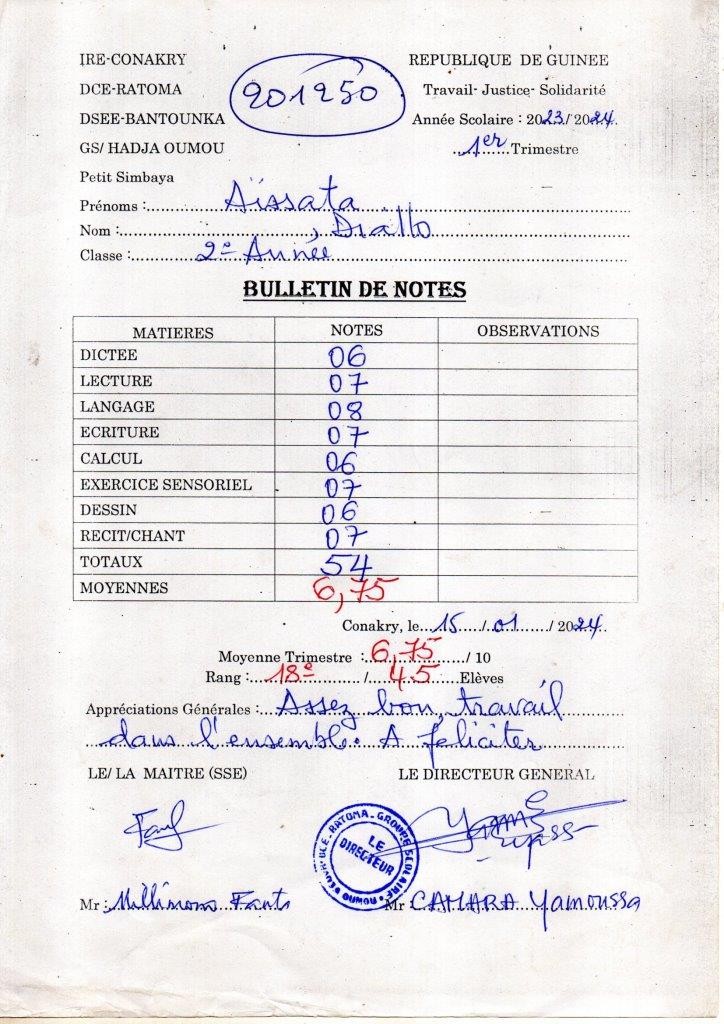 IRE-CONAKRY REPUBLIQUE DE GUINEE
DCE-RATOMA 201250 Travail- Justice- Solidarité
DSEE-BANTOUNKA Année Scolaire : 2023/ 2024
GS/ HADJA OUMOU 1er Trimestre
Petit Simbaya
Prénoms : Aïssata
Nom : Diallo
Classe : 2e Année
BULLETIN DE NOTES
MATIERES NOTES OBSERVATIONS
DICTEE 06
LECTURE 07
LANGAGE 08
ECRITURE 07
CALCUL 06
EXERCICE SENSORIEL 07
DESSIN 06
RECIT/CHANT 07
TOTAUX 54
MOYENNES 6,75
Conakry, le 15 / 01 / 2024
Moyenne Trimestre : 6,75 / 10
Rang : 18e / 45 Elèves
Appréciations Générales : Assez bon travail
dans l'ensemble. A feliciter
LE/ LA MAITRE (SSE) LE DIRECTEUR GENERAL
DCE-RATOMA-GROUPE SCOLAIRE
OUMOU
LE
DIRECTEUR
Mr : Millimono Mr : CAMARA Yamoussa